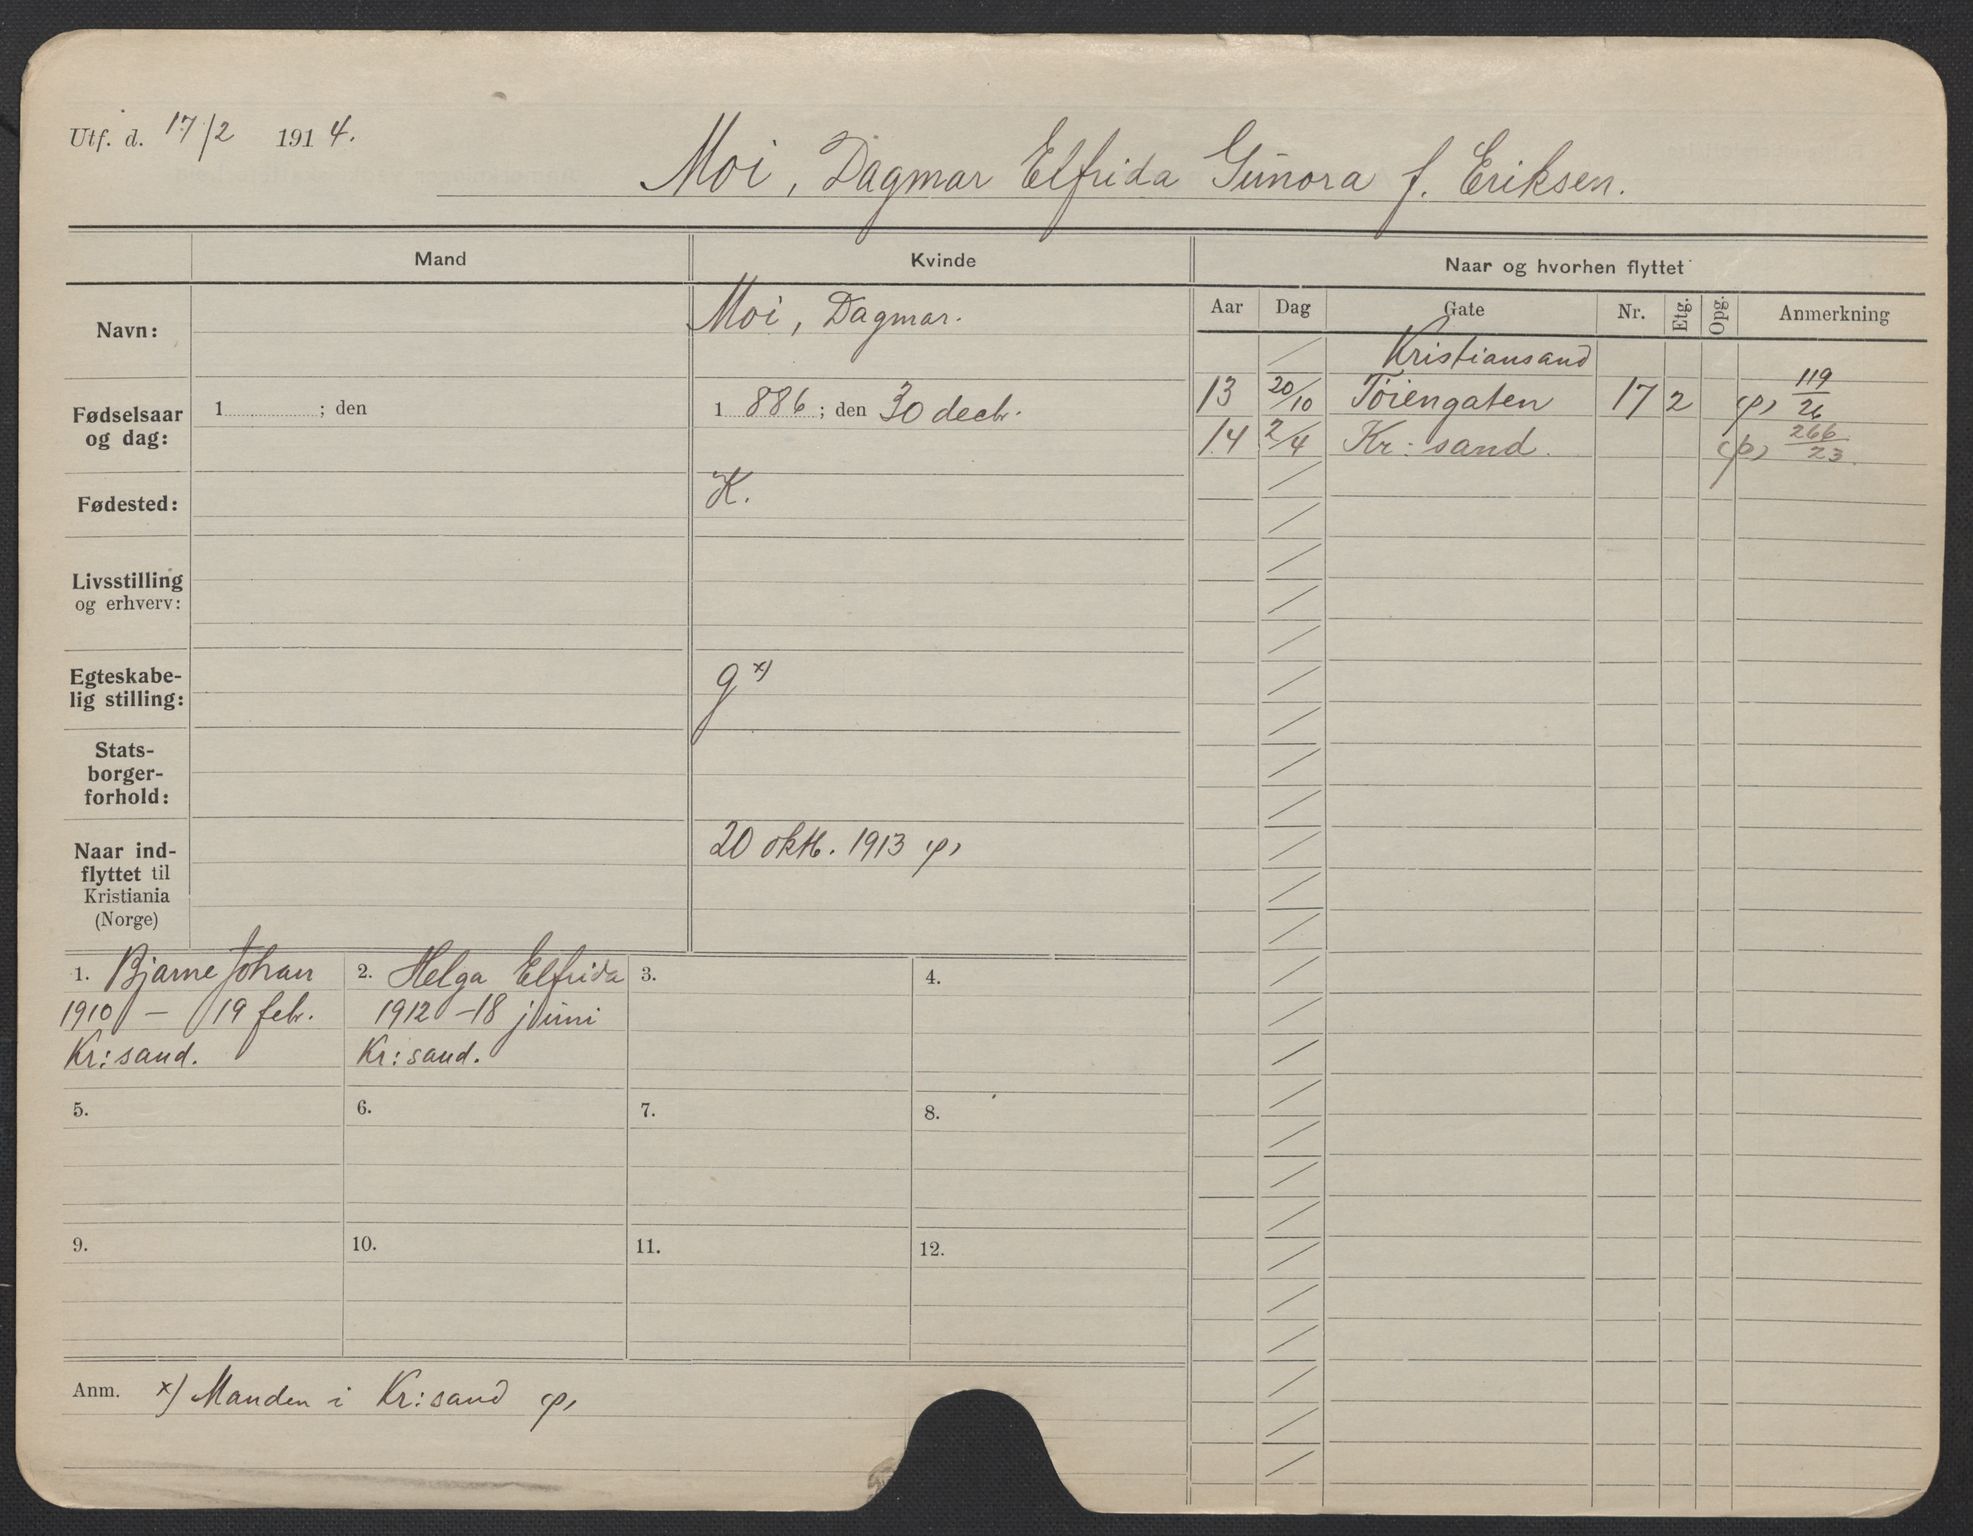 Utf. d. 17/2 1914.
Moi, Dagmar Elfrida Gunora f. Eriksen.
Mand
Kvinde
Naar og hvorhen flyttet
Aar Dag Gate Nr. Etg. Opg. Anmerkning
Navn:
Moi, Dagmar.
Kristiansand
13 20/10 Töiengaten 17 2 119/26
14 2/4 Kr: sand. 266/23.
Fødselsaar
og dag:
1 ; den
1 886 ; den 30 decbr.
Fødested:
K.
Livsstilling
og erhverv:
Egteskabe-
lig stilling:
g x)
Stats-
borger-
forhold:
Naar ind-
flyttet til
Kristiania
(Norge)
20 oktb. 1913
1. Bjarne Johan
1910 – 19 febr.
Kr: sand.
2. Helga Elfrida
1912 – 18 juni
Kr: sand.
3.
4.
5.
6.
7.
8.
9.
10.
11.
12.
Anm. x) Manden i Kr: sand